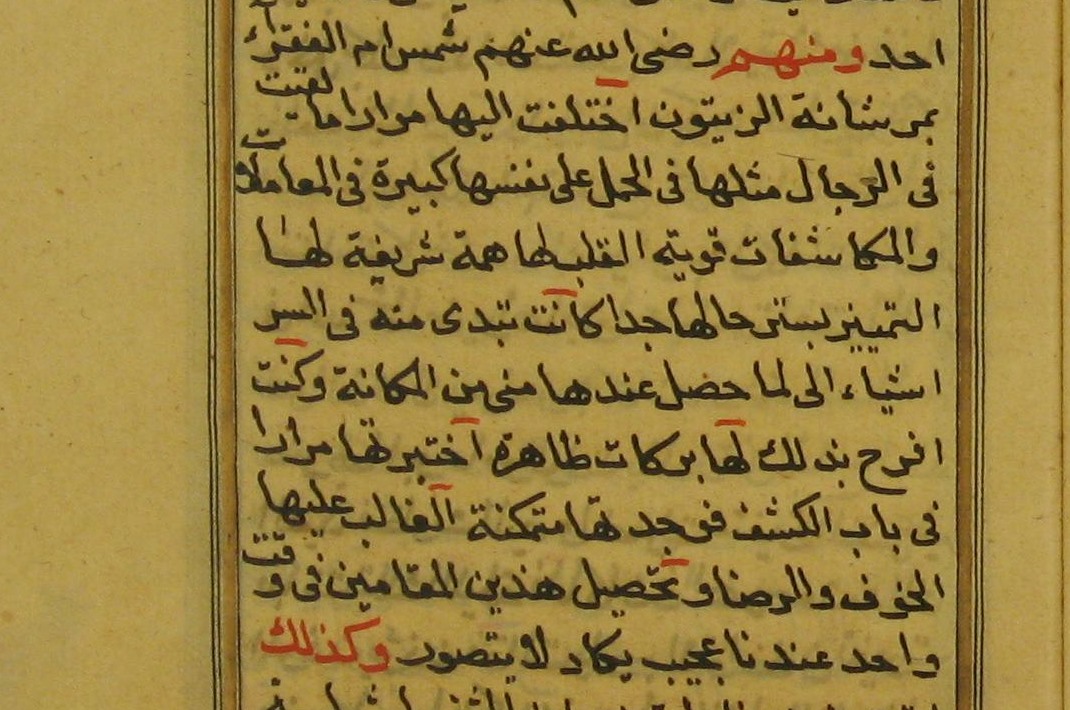 احد ومنهم رضى الله عنهم شمس ام الفقراء
بمرشانة الزيتون اختلفت اليها مرارا ما لقيت
فى الرجال مثلها فى الحمل على نفسها كبيرة فى المعاملات
والمكاشفات قوية القلب لها همة شريفة لها
التمييز بستر حالها جدا كانت تبدى منه فى السر
اشياء الى لما حصل عندها منى من المكانة وكنت
افرح بذلك لها بركات ظاهرة اختبرتها مرارا
فى باب الكشف فوجدتها متمكنة الغالب عليها
الخوف والرضا وتحصيل هذين المقامين فى وقت
واحد عندنا عجيب يكاد لا يتصور وكذلك